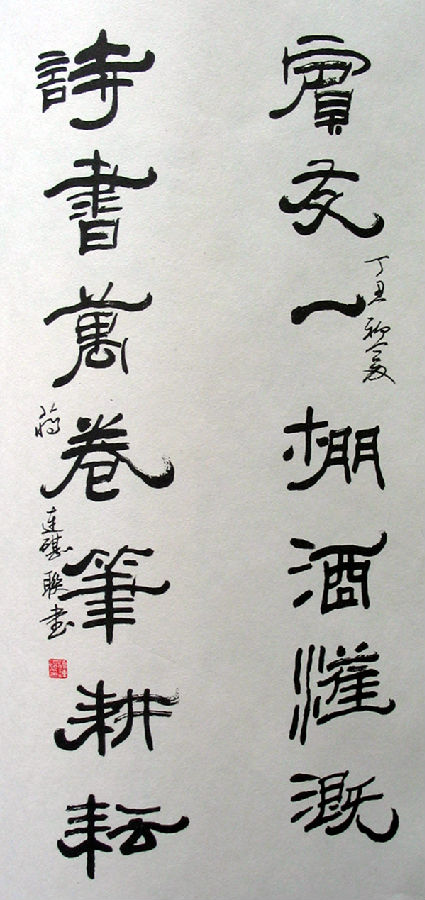 賓友一棚酒灌溉
丁丑初夏
詩書萬卷筆耕耘
蔣
聯書